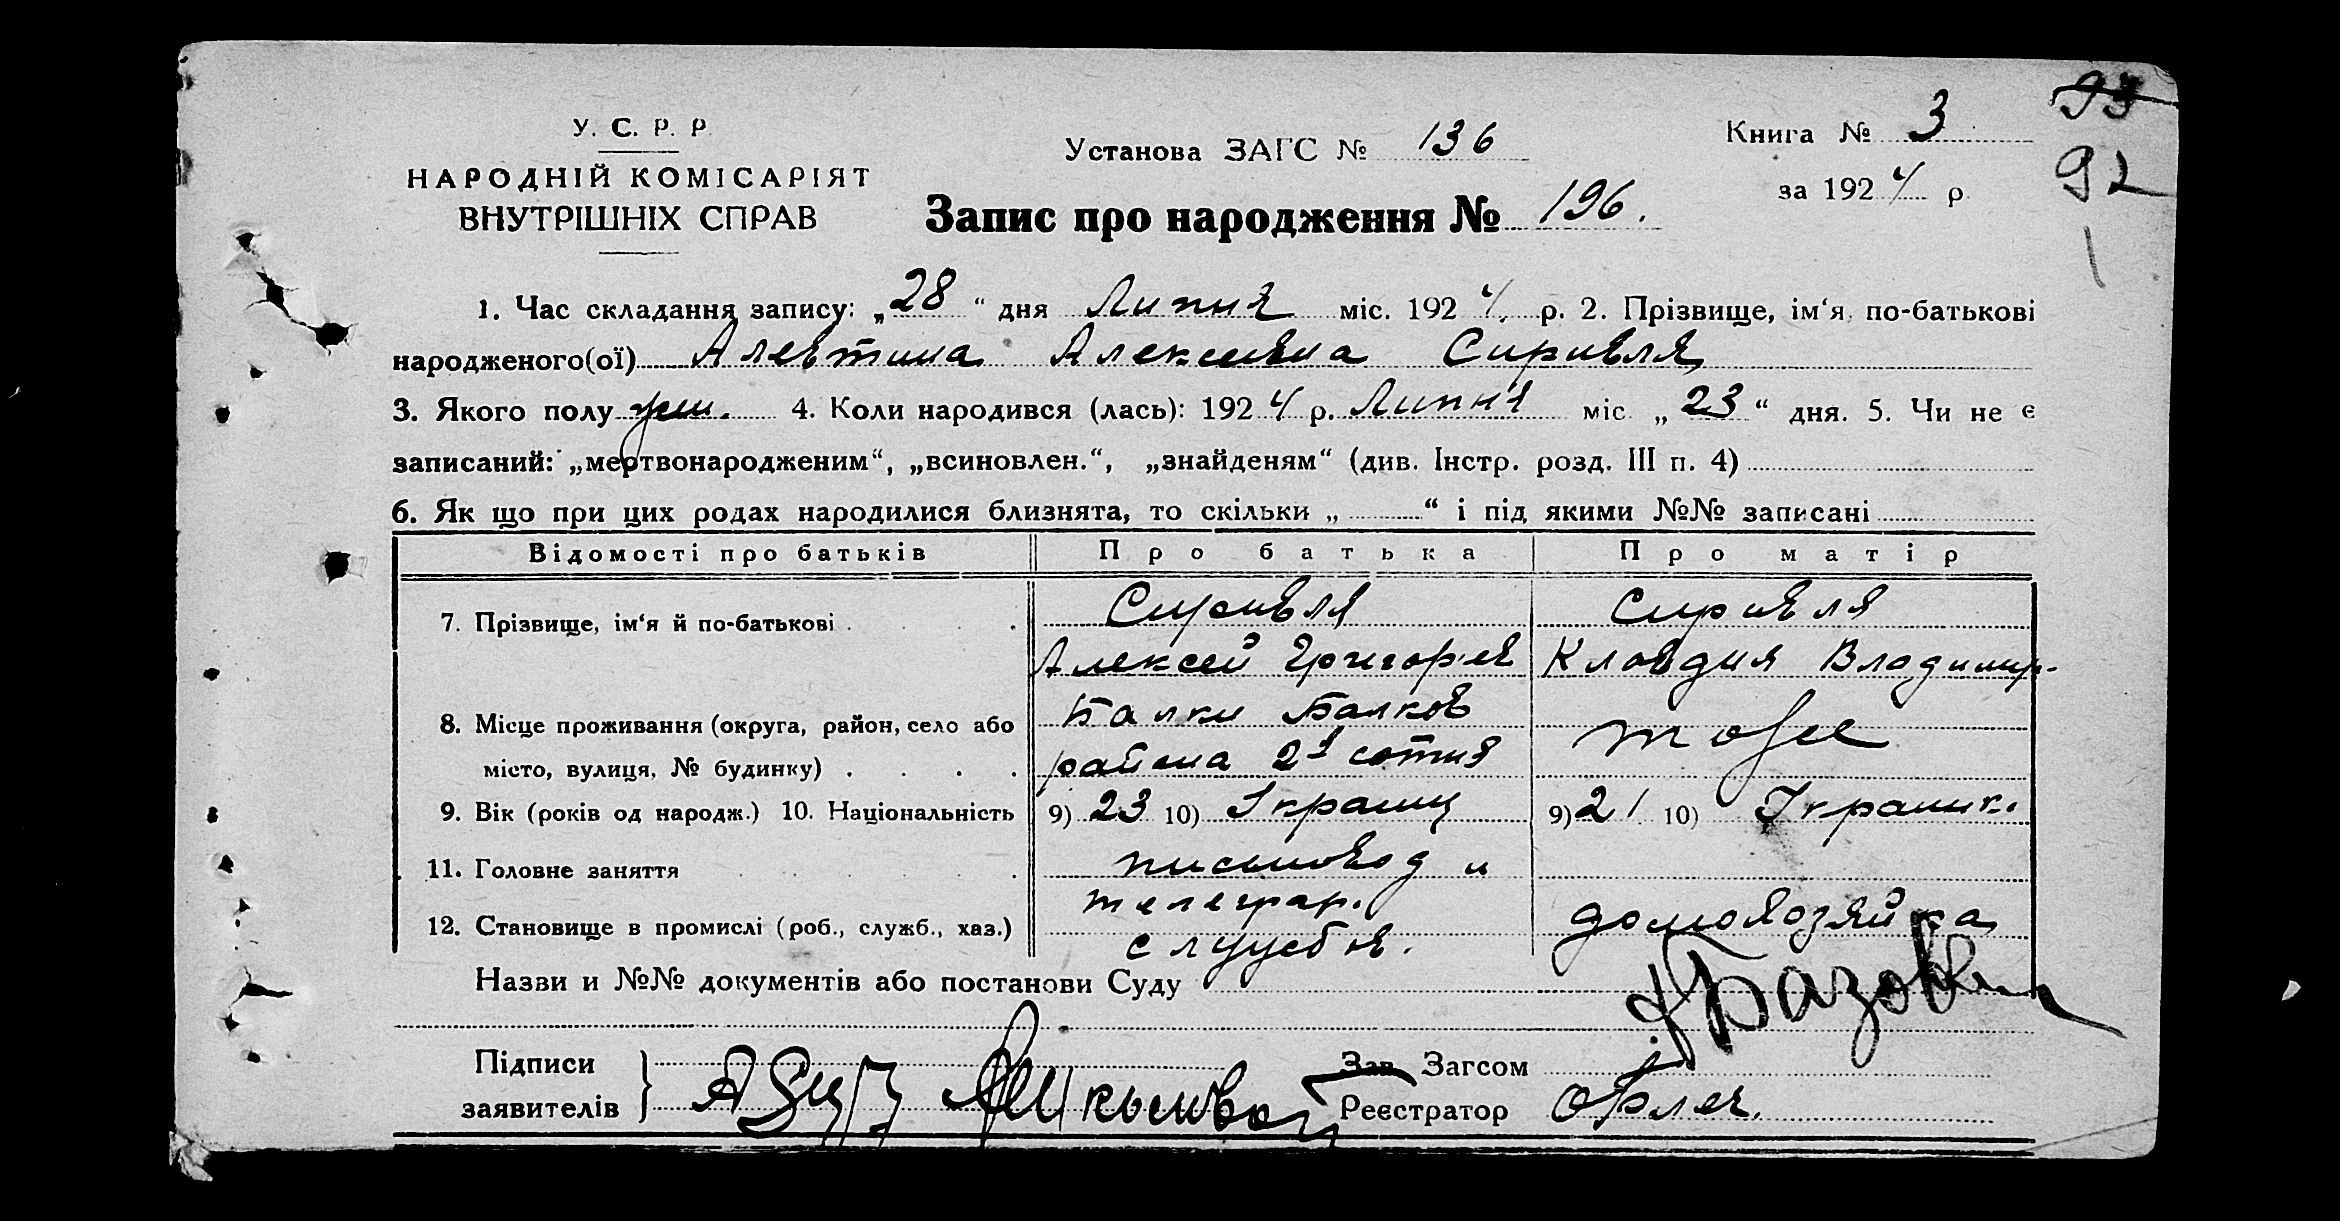 93
У. С. Р. Р.
Установа ЗАГС № 136
Книга № 3
92
НАРОДНІЙ КОМІСАРІЯТ
за 1924 р
ВНУТРІШНІХ СПРАВ
Запис про народження № 196.
1. Час складання запису: „28“ дня Липня міс. 1924. р. 2. Прізвище, ім‘я, по-батькові
народженого(ої) Алевтина Алексеевна Сиривля
3. Якого полу жін. 4. Коли народився (лась): 1924 р. Липня міс „23“ дня. 5. Чи не є
записаний: „мертвонародженим“, „всиновлен.“, „знайденям“ (див. Інстр. розд. III п. 4)
6. Як що при цих родах народилися близнята, то скільки „ “ і під якими №№ записані
Відомості про батьків Про батька Про матір
7. Прізвище, ім‘я й по-батькові Сиривля Сиривля
Алексей Григорев Кловдия Владимир.
8. Місце проживання (округа, район, село або Балки Балков тоже
місто, вулиця, № будинку) района 2я сотня
9. Вік (років од народж.) 10. Національність 9) 23 10) Украинц 9) 21 10) Украинк.
11. Головне заняття письмовод и
телеграр.
12. Становище в промислі (роб., служб., хаз.) служб домохозяйка
Назви и №№ документів або постанови Суду
Підписи
Зав. Загсом
заявителів
Реєстратор